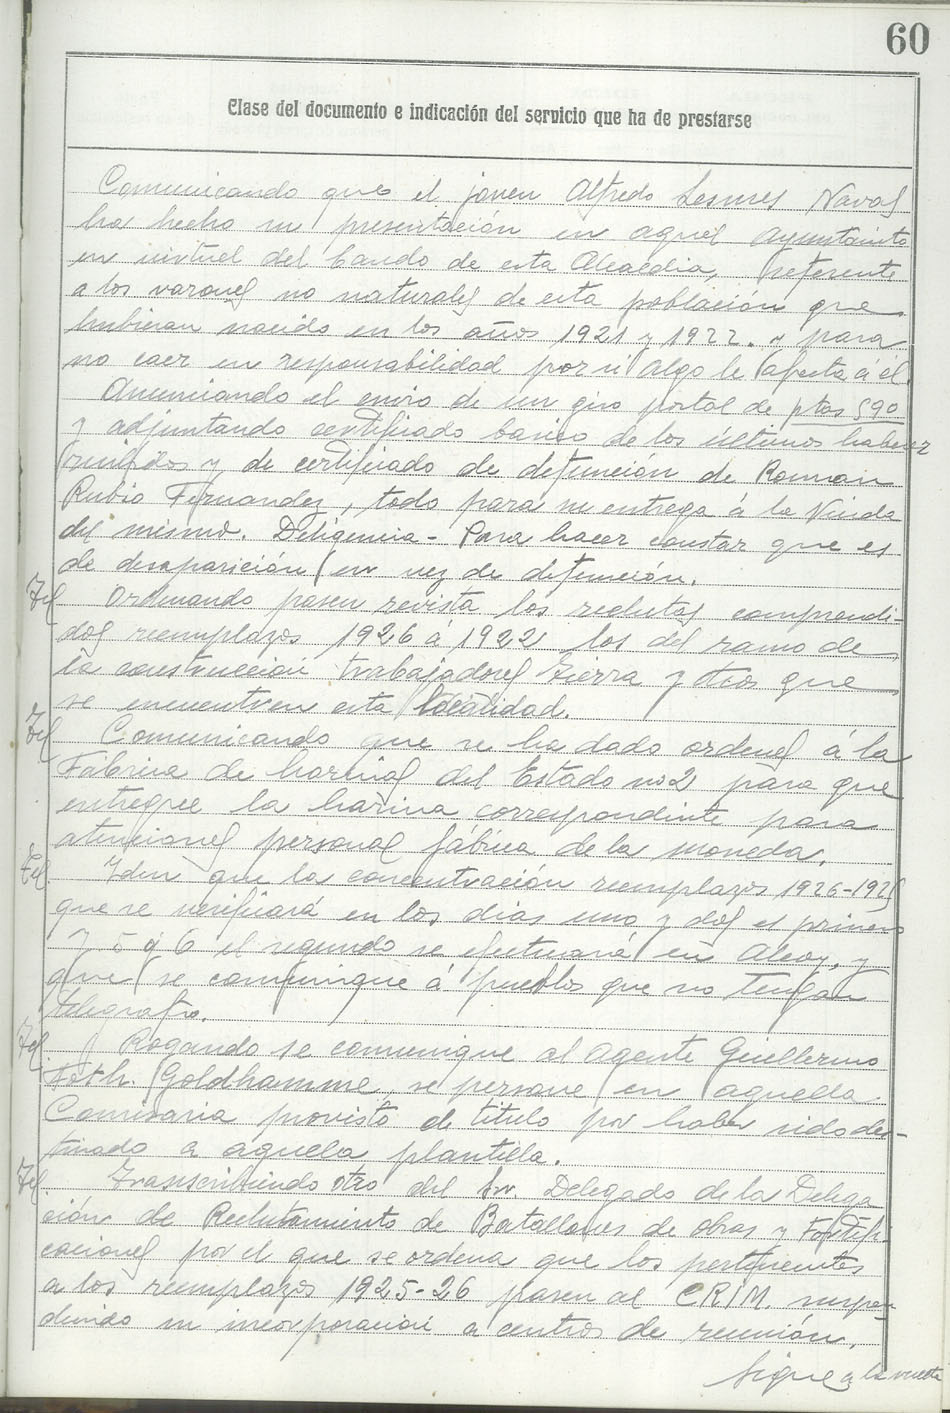 60
Clase del documento e indicación del servicio que ha de prestarse
Comunicando que el joven Alfredo Lesmes Naval
ha hecho su presentación en aquel Ayuntamto
en virtud del bando de esta Alcaldia, referente
a los varones no naturales de esta población que
hubieran nacido en los años 1921 y 1922. y para
no caer en responsabilidad por si algo le afecta a él.
Anunciando el envio de un giro postal de ptas 590
y adjuntando certificado basico de los últimos haberes
y de certificado de defunción de Roman
Rubio Fernandez, todo para su entrega á la Viuda
del mismo. Deligencia - Para hacer constar que es
de desaparición en vez de defunción.
Tel Ordenando pasen revista los reclutas comprendi-
dos reemplazos 1926 á 1922 los del ramo de
la construccion trabajadores tierra y otros que
se encuentren esta localidad.
Tel Comunicando que se ha dado ordenes á la
Fábrica de harinas del Estado no 2 para que
entregue la harina correspondiente para
atenciones personal fábrica de la moneda.
Tel Idem que la concentración reemplazos 1926-1925
que se verificará en los dias uno y dos el primero
y 5 y 6 el segundo se efectuará en Alcoy, y
que se comunique á pueblos que no tengan
telegrafo.
Tel Rogando se comunique al Agente Guillermo
Goldhamme, se persone en aquella
Comisaria provisto de titulo por haber sido des-
tinado a aquela plantilla.
Tel Transcribiendo otro del Sr. Delegado de la Delega
ción de Reclutamiento de Batallones de obras y Fortifi-
caciones por el que se ordena que los pertenecientes
a los reemplazos 1925-26 pasen al CRIM. suspen-
diendo su incorporacion a centros de reunión.
Sigue a la vuelta